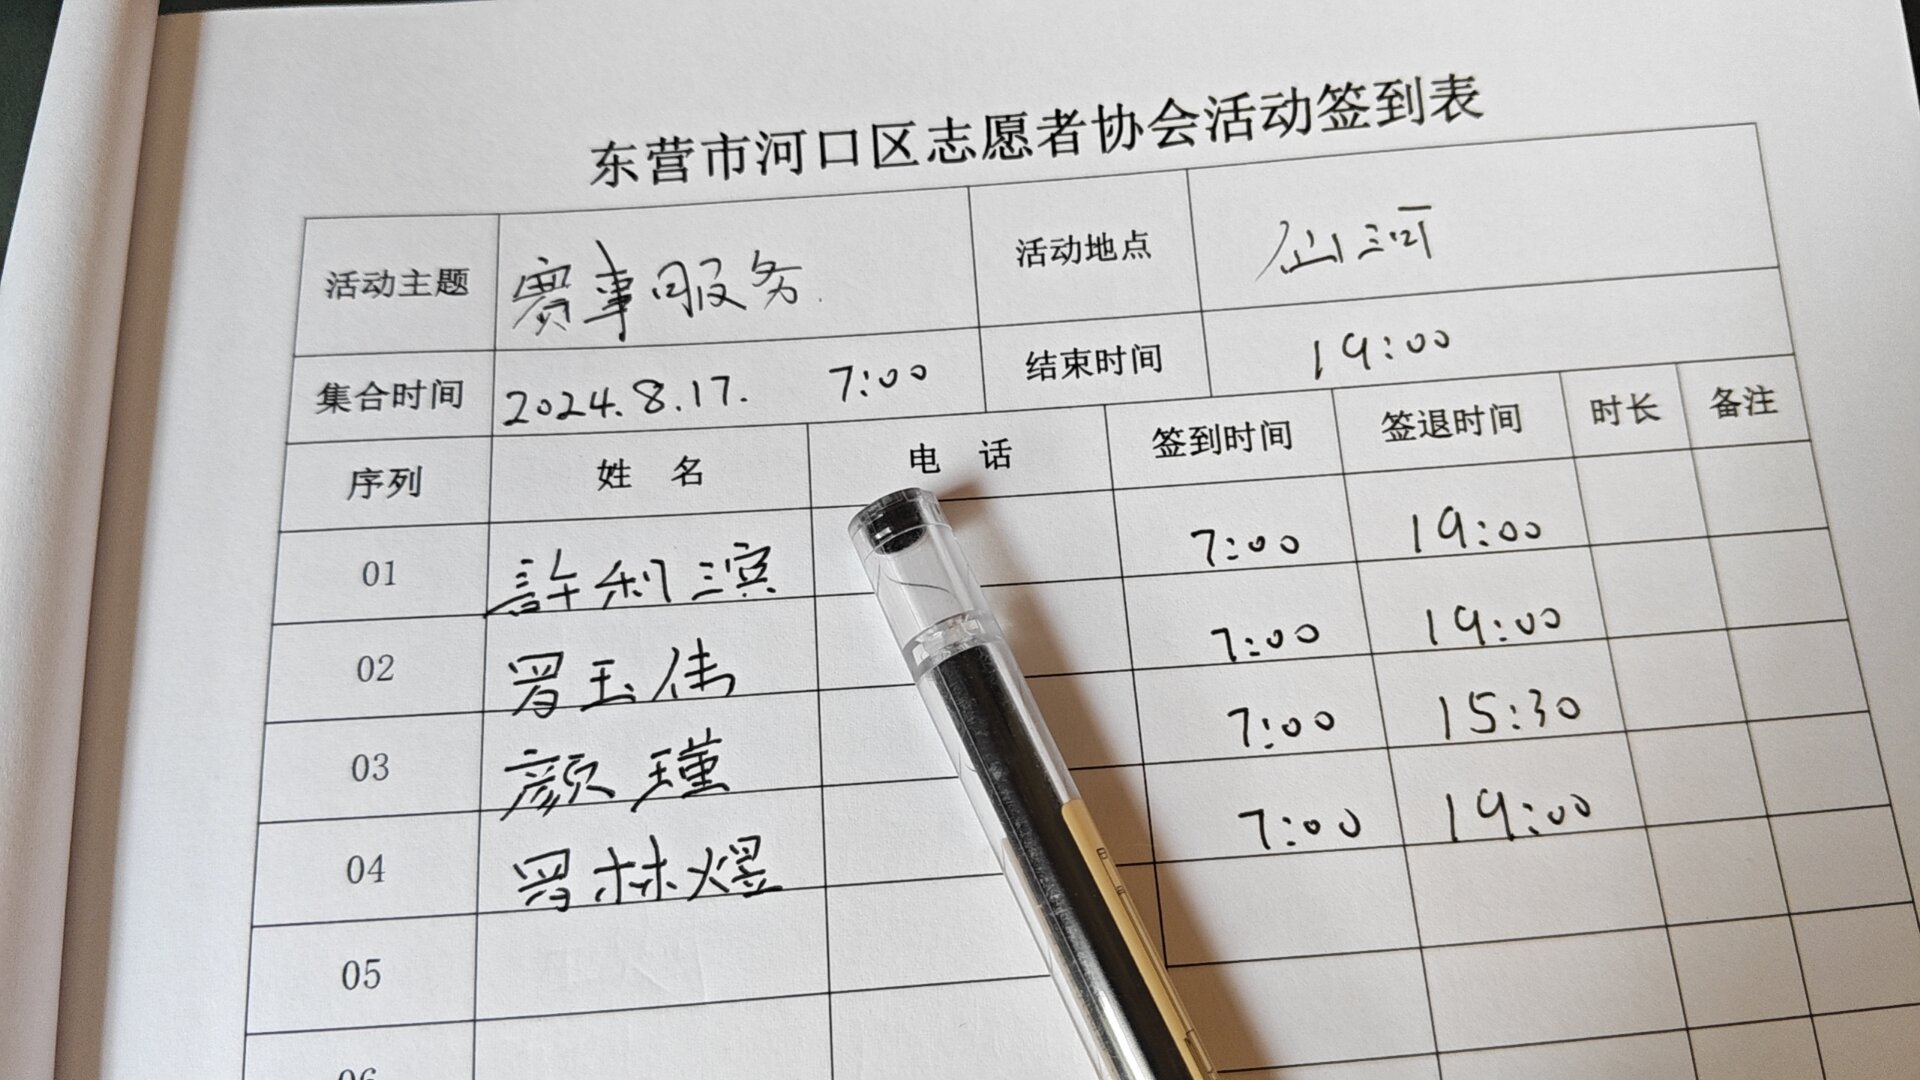 东营市河口区志愿者协会活动签到表
活动主题 赛事服务 活动地点 仙河
集合时间 2024.8.17. 7:00 结束时间 19:00
序列 姓 名 电 话 签到时间 签退时间 时长 备注
01 許利滨 7:00 19:00
02 罗玉伟 7:00 19:00
03 颜瑾 7:00 15:30
04 罗林煜 7:00 19:00
05
06